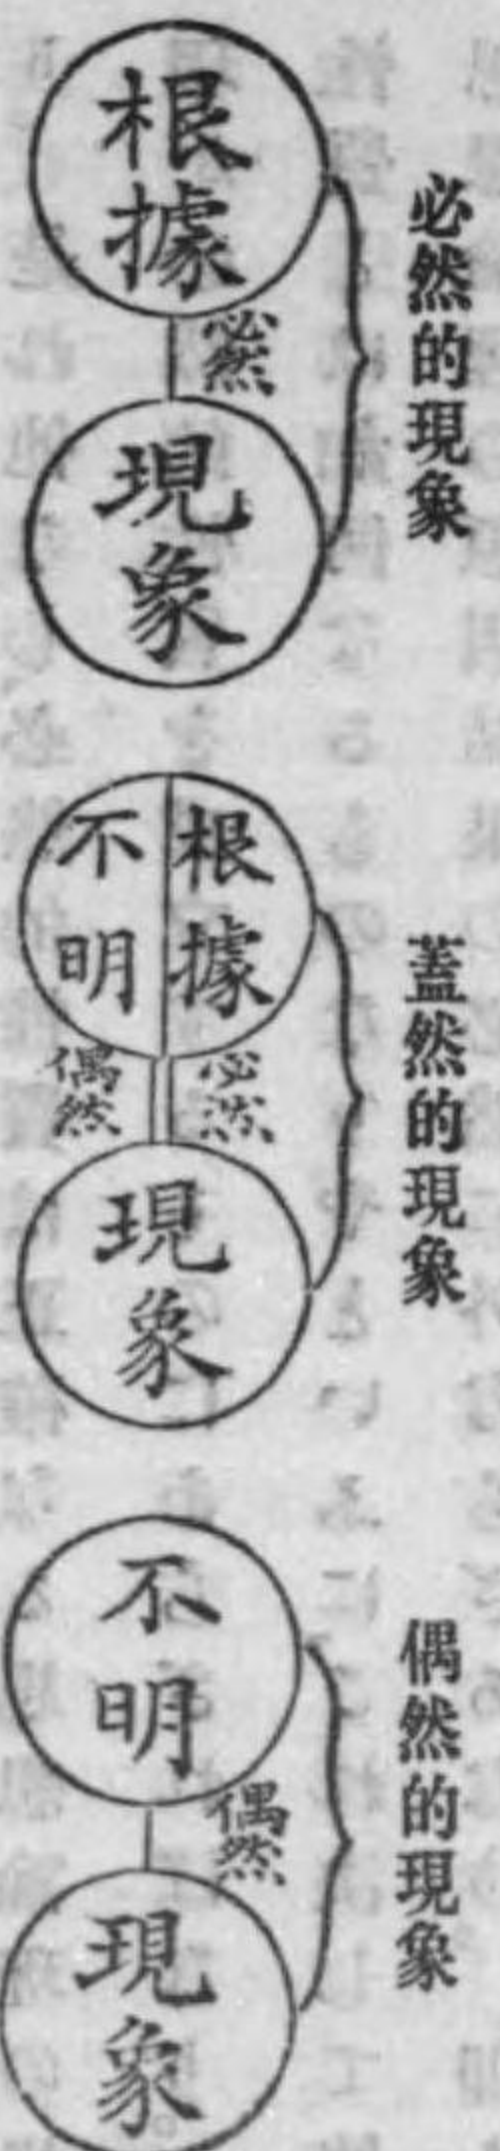 必然的現象
根據
必然
現象
蓋然的現象
根據
不明
必然
偶然
現象
偶然的現象
不明
偶然
現象